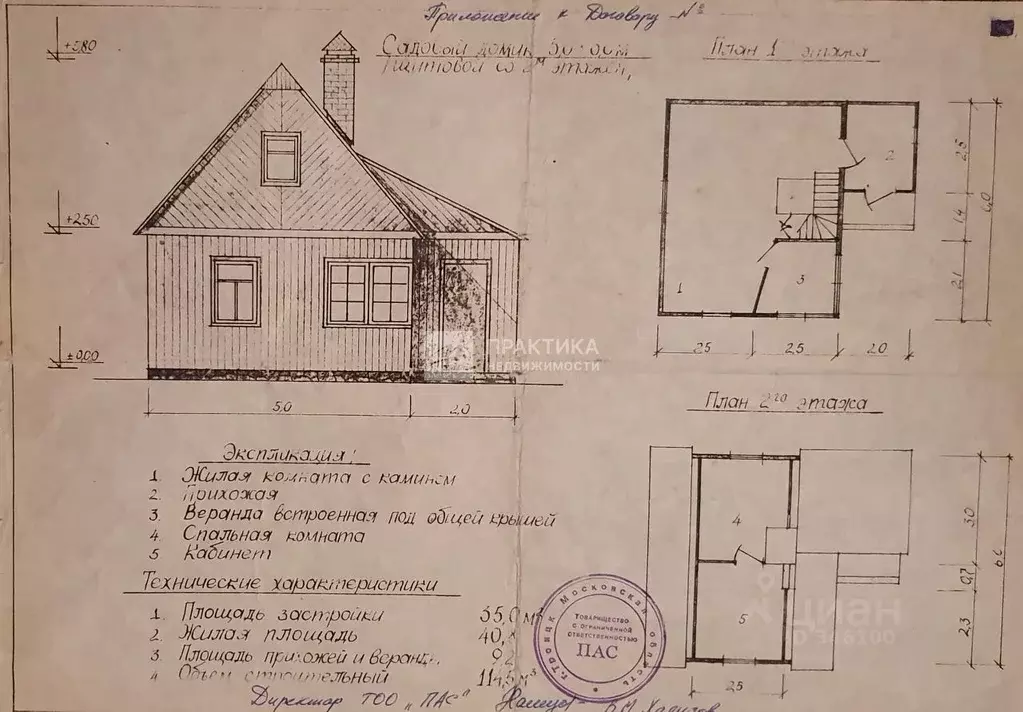 Приложение к Договору №
Садовый домик 5,0×6,0м
щитовой со 2м этажем,
План 1 этажа
+5,80
+2,50
±0,00
5,0
2,0
1
2
3
2,5
1,4
2,1
6,0
2,5
2,5
2,0
ПРАКТИКА
НЕДВИЖИМОСТИ
План 2го этажа
4
5
3,0
0,7
2,3
2,5
Экспликация:
1. Жилая комната с камином
2. Прихожая
3. Веранда встроенная под общей крышей
4 Спальная комната
5 Кабинет
Технические характеристики
1. Площадь застройки 35,0 м²
2. Жилая площадь 40,
3. Площадь прихожей и веранд. 9,2
4 Объем строительный 114,5 м³
г. Троицк Московская область
ТОВАРИЩЕСТВО
С ОГРАНИЧЕННОЙ
ОТВЕТСТВЕННОСТЬЮ
ПАС
циан
Директор ТОО "ПАС"